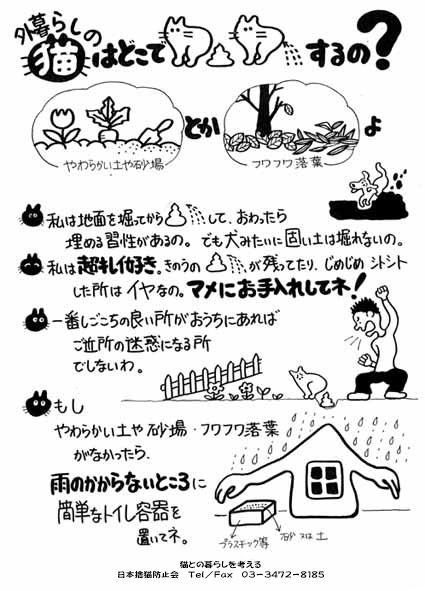 外暮らしの
猫はどこでするの？
やわらかい土や砂場
とか
フワフワ落葉
よ
私は地面を掘ってからして、おわったら
埋める習性があるの。でも犬みたいに固い土は掘れないの。
私は超キレイ好き。きのうのが残ってたり、じめじめシトシト
した所はイヤなの。マメにお手入れしてネ！
一番しごこちの良い所がおうちにあれば
ご近所の迷惑になる所
でしないわ。
もし
やわらかい土や砂場・フワフワ落葉
がなかったら、
雨のかからないところに
簡単なトイレ容器を
置いてネ。
プラスチック等
砂又は土
猫との暮らしを考える
日本捨猫防止会 Tel/Fax 03-3472-8185